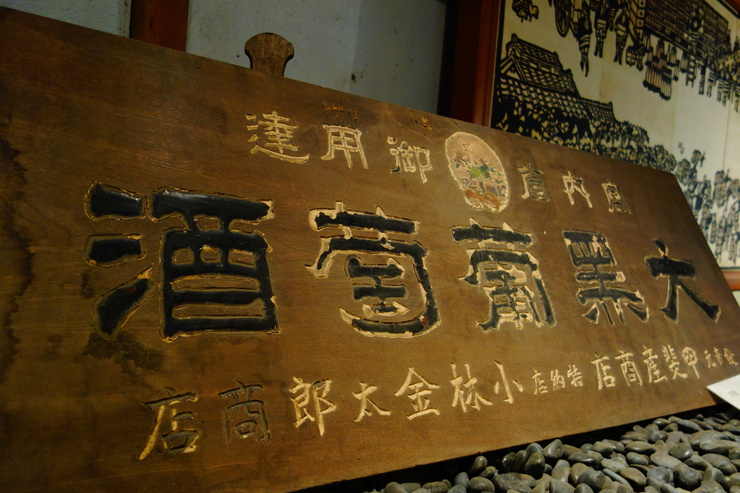 宮内省御用達
大黒葡萄酒
発売元甲斐産商店特約店小林金太郎商店